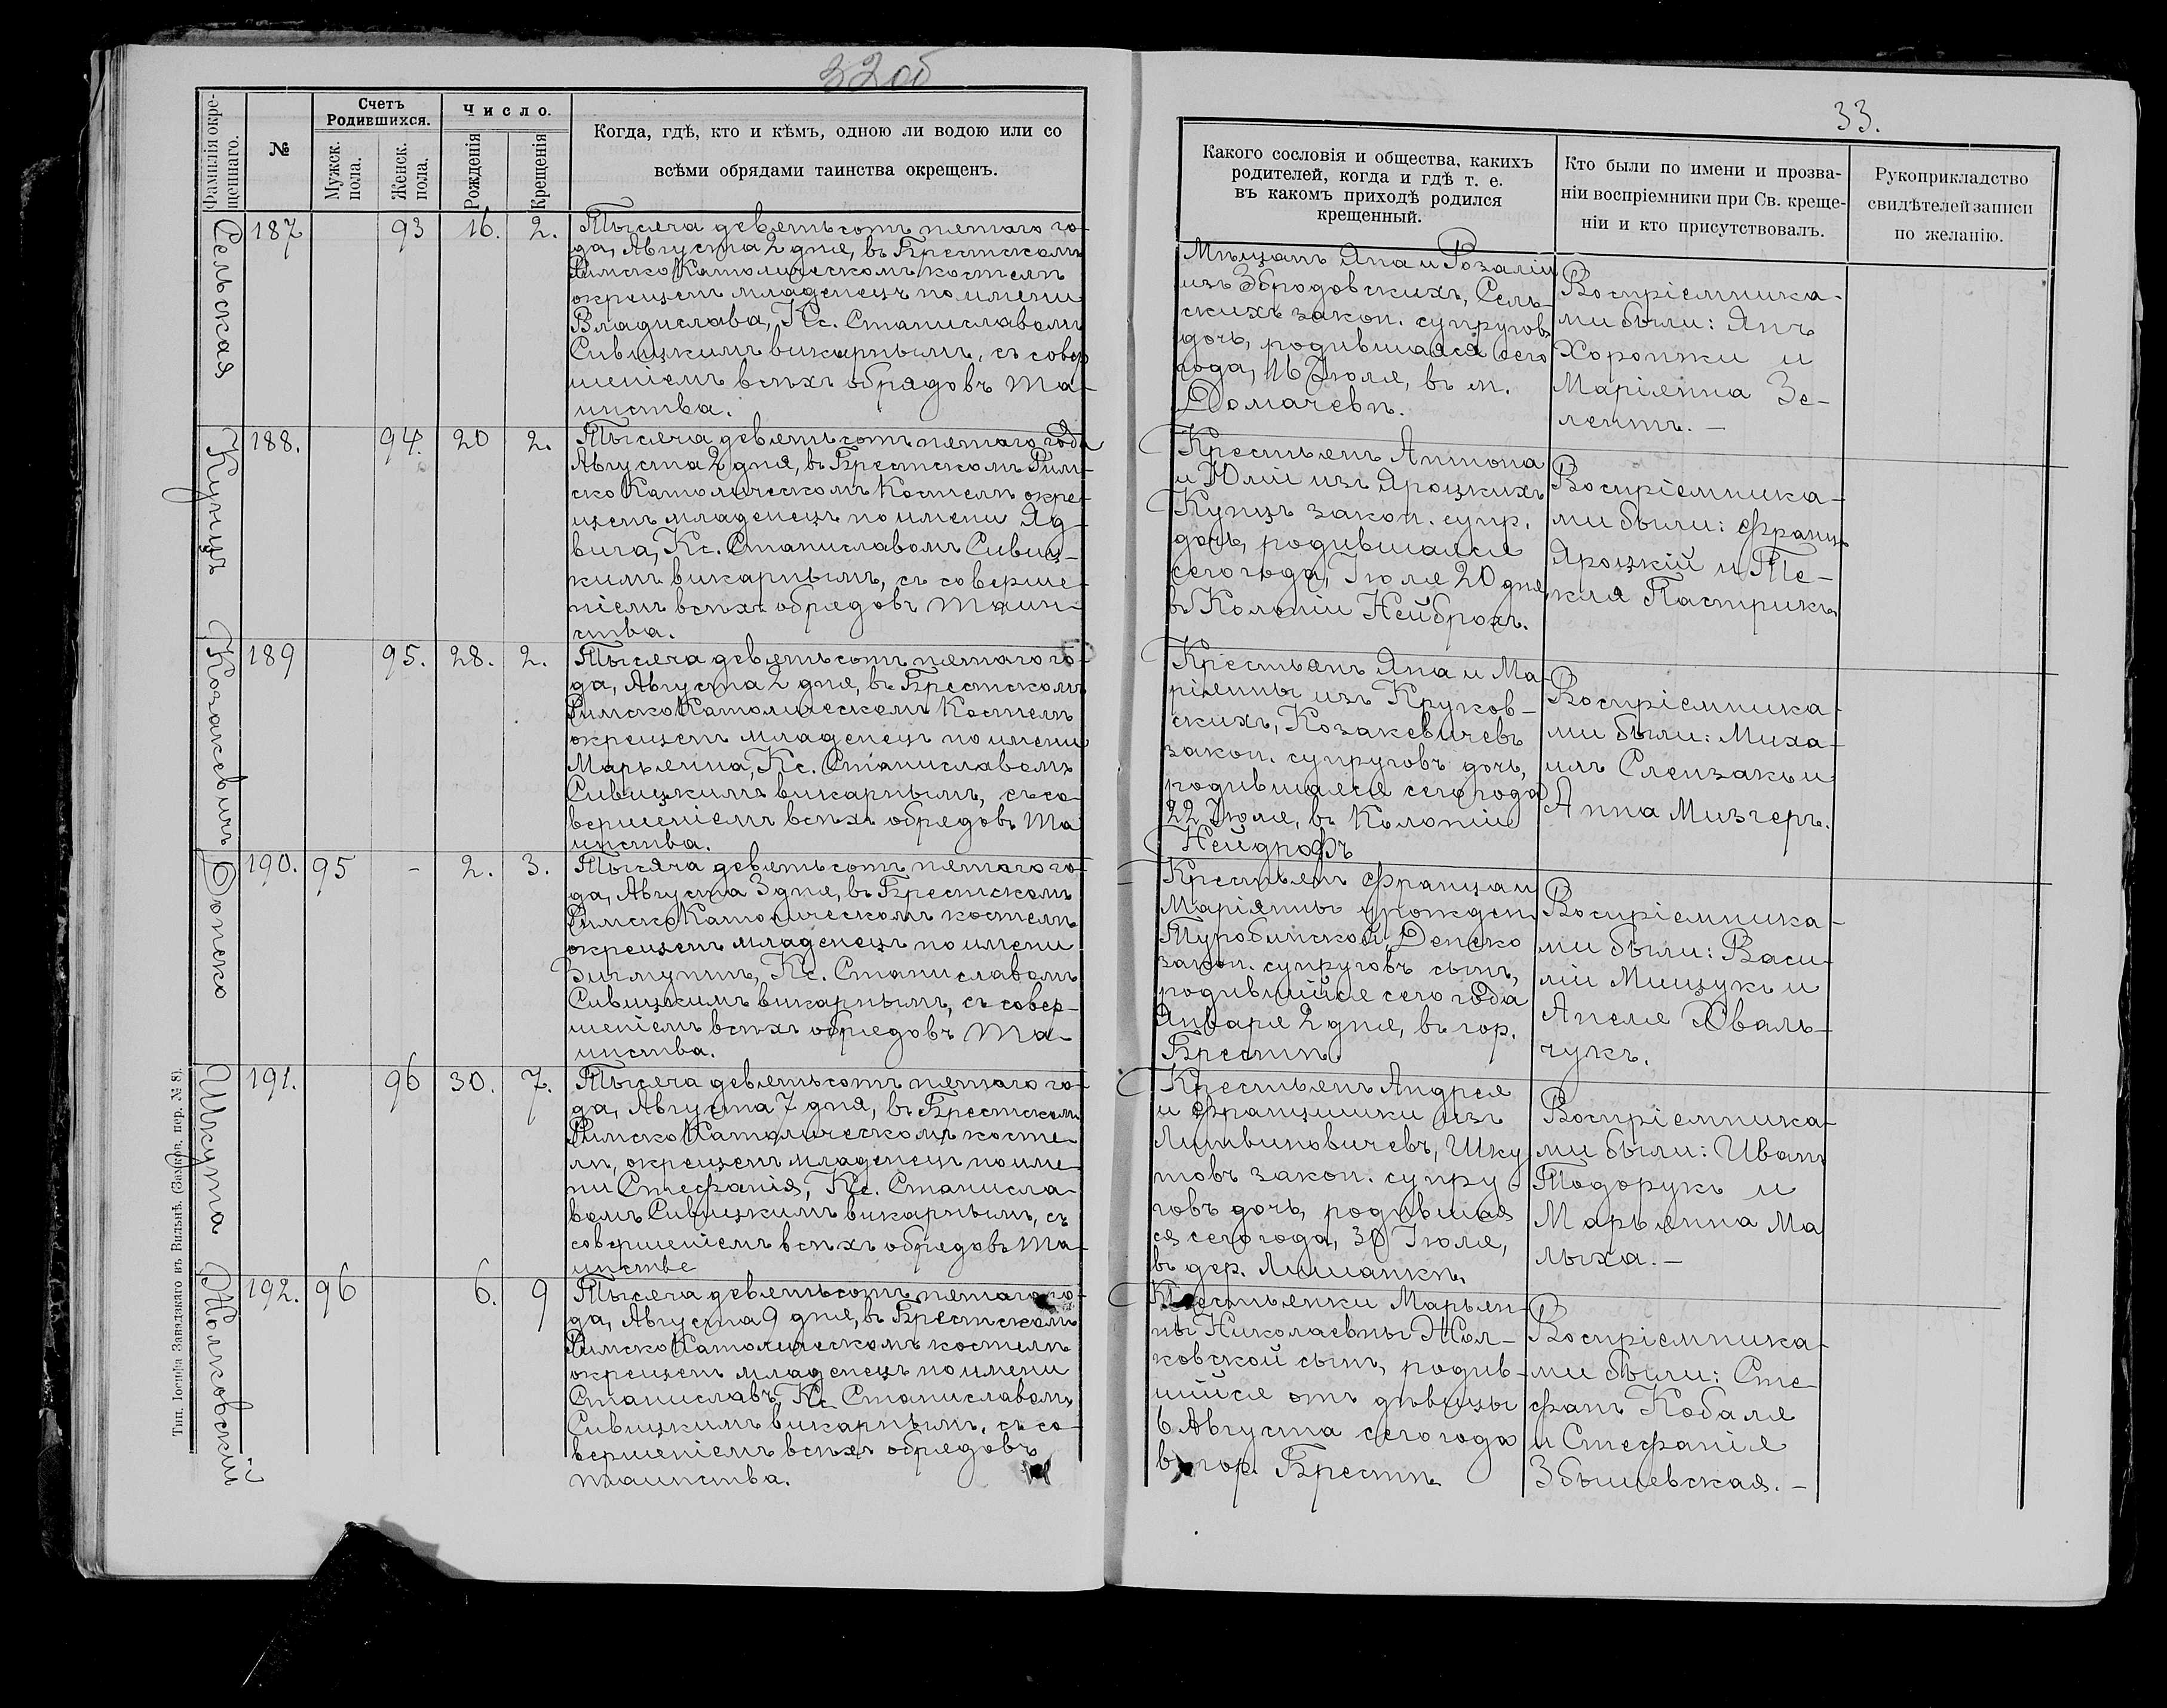 32 об
Фамилія окре-
щеннаго.
№
Счетъ
Родившихся.
Мужск.
пола.
Женск.
пола.
Число.
Рожденія
Крещенія
Когда, гдѣ, кто и кѣмъ, одною ли водою или со
всѣми обрядами таинства окрещенъ.
33.
Какого сословія и общества, какихъ
родителей, когда и гдѣ т. е.
въ какомъ приходѣ родился
крещенный.
Кто были по имени и прозва-
ніи воспріемники при Св. креще-
ніи и кто присутствовалъ.
Рукоприкладство
свидѣтелей записи
по желанію.
Сельская
187 93 16. 2.
Тысяча девятьсотъ пятаго го-
да, Августа 2 дня, въ Брестскомъ
Римско Католическомъ костелѣ
окрещенъ младенецъ по имени
Владислава, Кс. Станиславомъ
Сивицкимъ викарнымъ, съ совер
шеніемъ всѣхъ обрядовъ та-
инства.
Мѣщанъ Яна и Розаліи
изъ Збродовскихъ, Сель-
скихъ закон. супруговъ
дочь, родившаяся сего
года, 16 Іюля, въ м.
Домачевѣ.
Воспріемника-
ми были: Янъ
Хоронжи и
Маріянна Зе-
лентъ. –
Кунцъ
188. 94. 20 2.
Тысяча девятьсотъ пятаго года
Августа 2 дня, въ Брестскомъ Рим-
ско Католическомъ Костелѣ окре-
щенъ младенецъ по имени Яд-
вига, Кс. Станиславомъ Сивиц-
кимъ викарнымъ, съ соверше-
ніемъ всѣхъ обрядовъ таин-
ства.
Крестьянъ Антона
и Юліи изъ Яроцкихъ
Кунцъ закон. супр.
дочь, родившаяся
сего года, Іюля 20 дня,
въ Колоніи Нейброхъ.
Воспріемника-
ми были: Францъ
Яроцкій и Те-
кля Пастрикъ
Козакевичъ
189 95. 28. 2.
Тысяча девятьсотъ пятаго го-
да, Августа 2 дня, въ Брестскомъ
Римско Католическомъ Костелѣ
окрещенъ младенецъ по имени
Марьянна, Кс. Станиславомъ
Сивицкимъ викарнымъ, съ со-
вершеніемъ всѣхъ обрядовъ та
инства.
Крестьянъ Яна и Ма-
ріянны изъ Круков-
скихъ, Козакевичевъ
закон. супруговъ дочь,
родившаяся сего года
22 Іюля, въ Колоніи
Нейдрофъ
Воспріемника-
ми были: Миха-
илъ Слензакъ и
Анна Мизгеръ.
Допско
190. 95 - 2. 3.
Тысяча девятьсотъ пятаго го-
да, Августа 3 дня, въ Брестскомъ
Римско Католическомъ костелѣ
окрещенъ младенецъ по имени
Зигмунтъ, Кс. Станиславомъ
Сивицкимъ викарнымъ, съ совер-
шеніемъ всѣхъ обрядовъ та-
инства.
Крестьянъ Франца и
Маріянны урожден.
Туробинской, Депско
закон. супруговъ сынъ,
родившійся сего года
Января 2 дня, въ гор.
Брестѣ.
Воспріемника-
ми были: Васи-
лій Мищукъ и
Анеля Коваль-
чукъ.
Шкута
191. 96 30. 7.
Тысяча девятьсотъ пятаго го-
да, Августа 7 дня, въ Брестскомъ
Римско Католическомъ косте-
лѣ, окрещенъ младенецъ по име
ни Стефанія, Кс. Станисла-
вомъ Сивицкимъ викарнымъ, съ
совершеніемъ всѣхъ обрядовъ та-
инстве
Крестьянъ Андрея
и Францишки изъ
Литвиновичевъ, Шку
товъ закон. супру-
говъ дочь, родившая
ся сего года, 30 Іюля,
въ дер. Лишанкѣ.
Воспріемника-
ми были: Иванъ
Тодорукъ и
Марьянна Ма
лыха. –
Жолковскій
192. 96 6. 9
Тысяча девятьсотъ пятаго го-
да, Августа 9 дня, въ Брестскомъ
Римско Католическомъ костелѣ
окрещенъ младенецъ по имени
Станиславъ, Кс. Станиславомъ
Сивицкимъ викарнымъ, съ со-
вершеніемъ всѣхъ обрядовъ
таинства.
Крестьянки Марьян-
ны Николаевны Жол-
ковской сынъ, родив-
шійся отъ дѣвицы
6 Августа сего года
въ гор. Брестѣ
Воспріемника-
ми были: Сте-
фанъ Кобаля
и Стефанія
Збышевская. –
Тип. Іосифа Завадзкаго въ Вильнѣ. (Замков. пер. № 8).